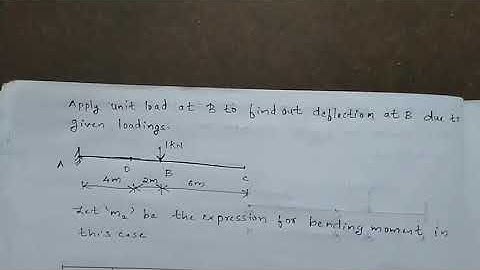 Apply unit load at B to find out deflection at B due to
given loadings.
1KN
A
D
B
C
4m
2m
6m
Let 'm₂' be the expression for bending moment in
this case